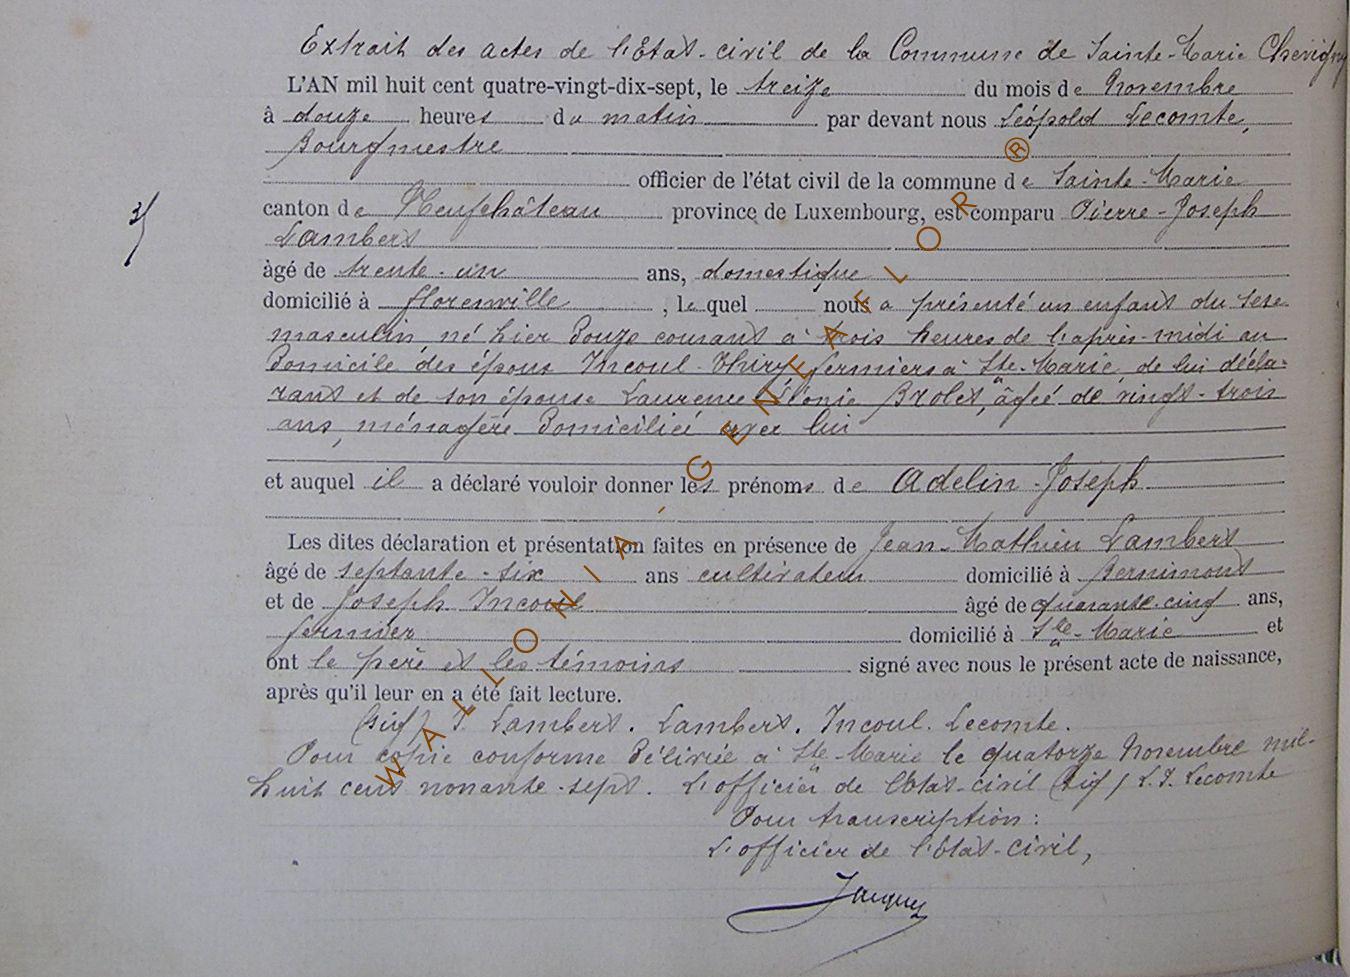 Extrait des actes de l'Etat-civil de la Commune de Sainte-Marie Chevigny
L'AN mil huit cent quatre-vingt-dix-sept, le treize du mois de Novembre
à douze heures du matin par devant nous Léopold Lecomte,
Bourgmestre
officier de l'état civil de la commune de Sainte-Marie
canton de Neufchâteau province de Luxembourg, est comparu Pierre-Joseph
Lambert
âgé de trente-un ans, domestique
domicilié à Florenville, lequel nous a présenté un enfant du sexe
masculin né hier douze courant à trois heures de l'après-midi au
domicile des époux Incoul-Thiry fermiers à Ste-Marie, de lui décla-
rant et de son épouse Laurence Léonie Brolet, âgée de vingt-trois
ans, ménagère domiciliée avec lui
et auquel il a déclaré vouloir donner les prénoms de Adelin-Joseph
Les dites déclaration et présentation faites en présence de Jean-Mathieu Lambert
âgé de septante-six ans cultivateur domicilié à Bernimont
et de Joseph Incoul âgé de quarante-cinq ans,
fermier domicilié à Ste-Marie et
ont le père et les témoins signé avec nous le présent acte de naissance,
après qu'il leur en a été fait lecture.
(Sig) J. Lambert. Lambert. Incoul. Lecomte.
Pour copie conforme délivrée à Ste-Marie le quatorze Novembre mil-
huit cent nonante-sept. L'officier de l'Etat-civil (Sig) L.J. Lecomte
Pour transcription:
L'officier de l'Etat-civil,
Jacques
WALLONIA-GENEAFLOR®